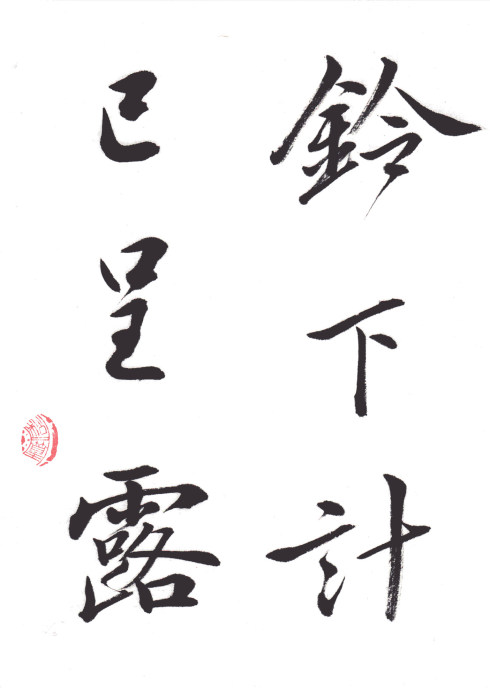 鈴下計
已呈露